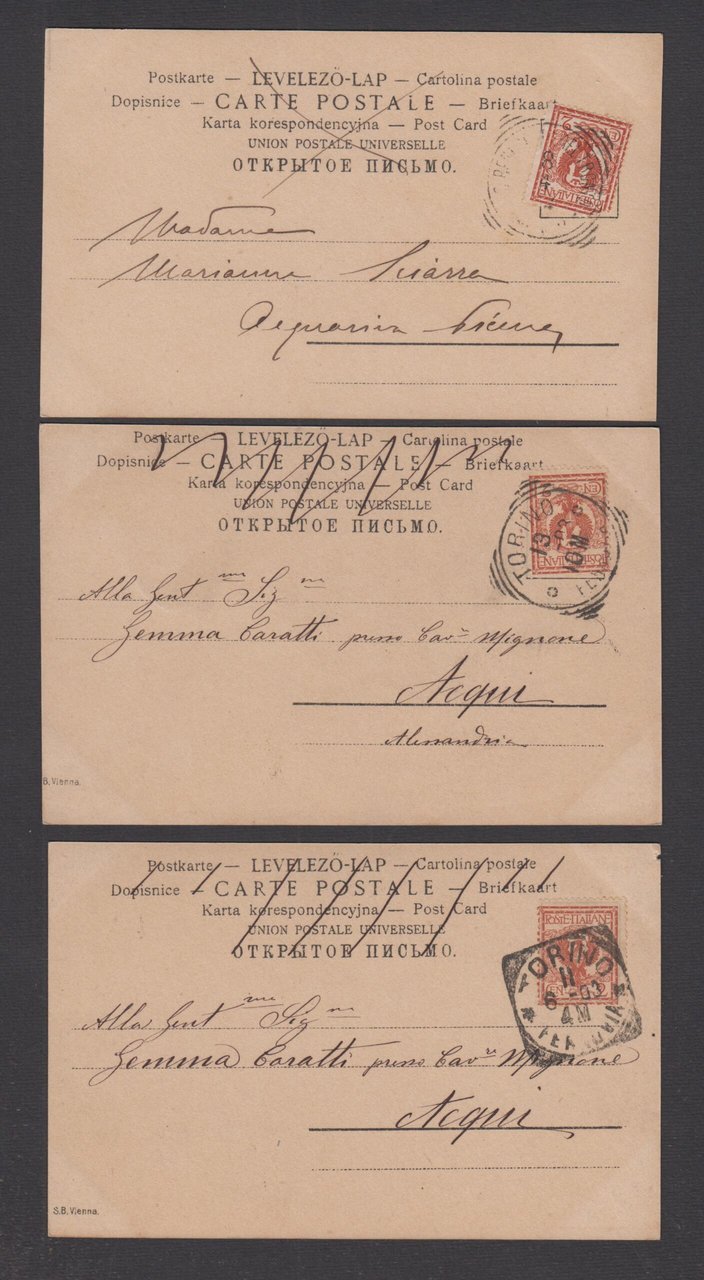 Postkarte — LEVELEZŐ-LAP — Cartolina postale
Dopisnice — CARTE POSTALE — Briefkaart
Karta korespondencyjna — Post Card
UNION POSTALE UNIVERSELLE
ОТКРЫТОЕ ПИСЬМО.
POSTE ITALIANE
Madame
Marianna Sciarra
Postkarte — LEVELEZŐ-LAP — Cartolina postale
Dopisnice — CARTE POSTALE — Briefkaart
Karta korespondencyjna — Post Card
UNION POSTALE UNIVERSELLE
ОТКРЫТОЕ ПИСЬМО.
TORINO
10M
Alla Gent.ma Sig.na
Gemma Caratti presso Cav.re Mignone
Acqui
Alessandria
B. Vienna.
Postkarte — LEVELEZŐ-LAP — Cartolina postale
Dopisnice — CARTE POSTALE — Briefkaart
Karta korespondencyjna — Post Card
UNION POSTALE UNIVERSELLE
ОТКРЫТОЕ ПИСЬМО.
POSTE·ITALIANE
TORINO
11
6 -03
4M
Alla Gent.ma Sig.na
Gemma Caratti presso Cav.re Mignone
Acqui
S.B. Vienna.